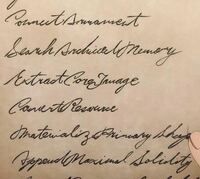 Connect Armament
Search Archived Memory
Extract Core Image
Convert Resource
Materialize Primary
Append Maximal Solidity